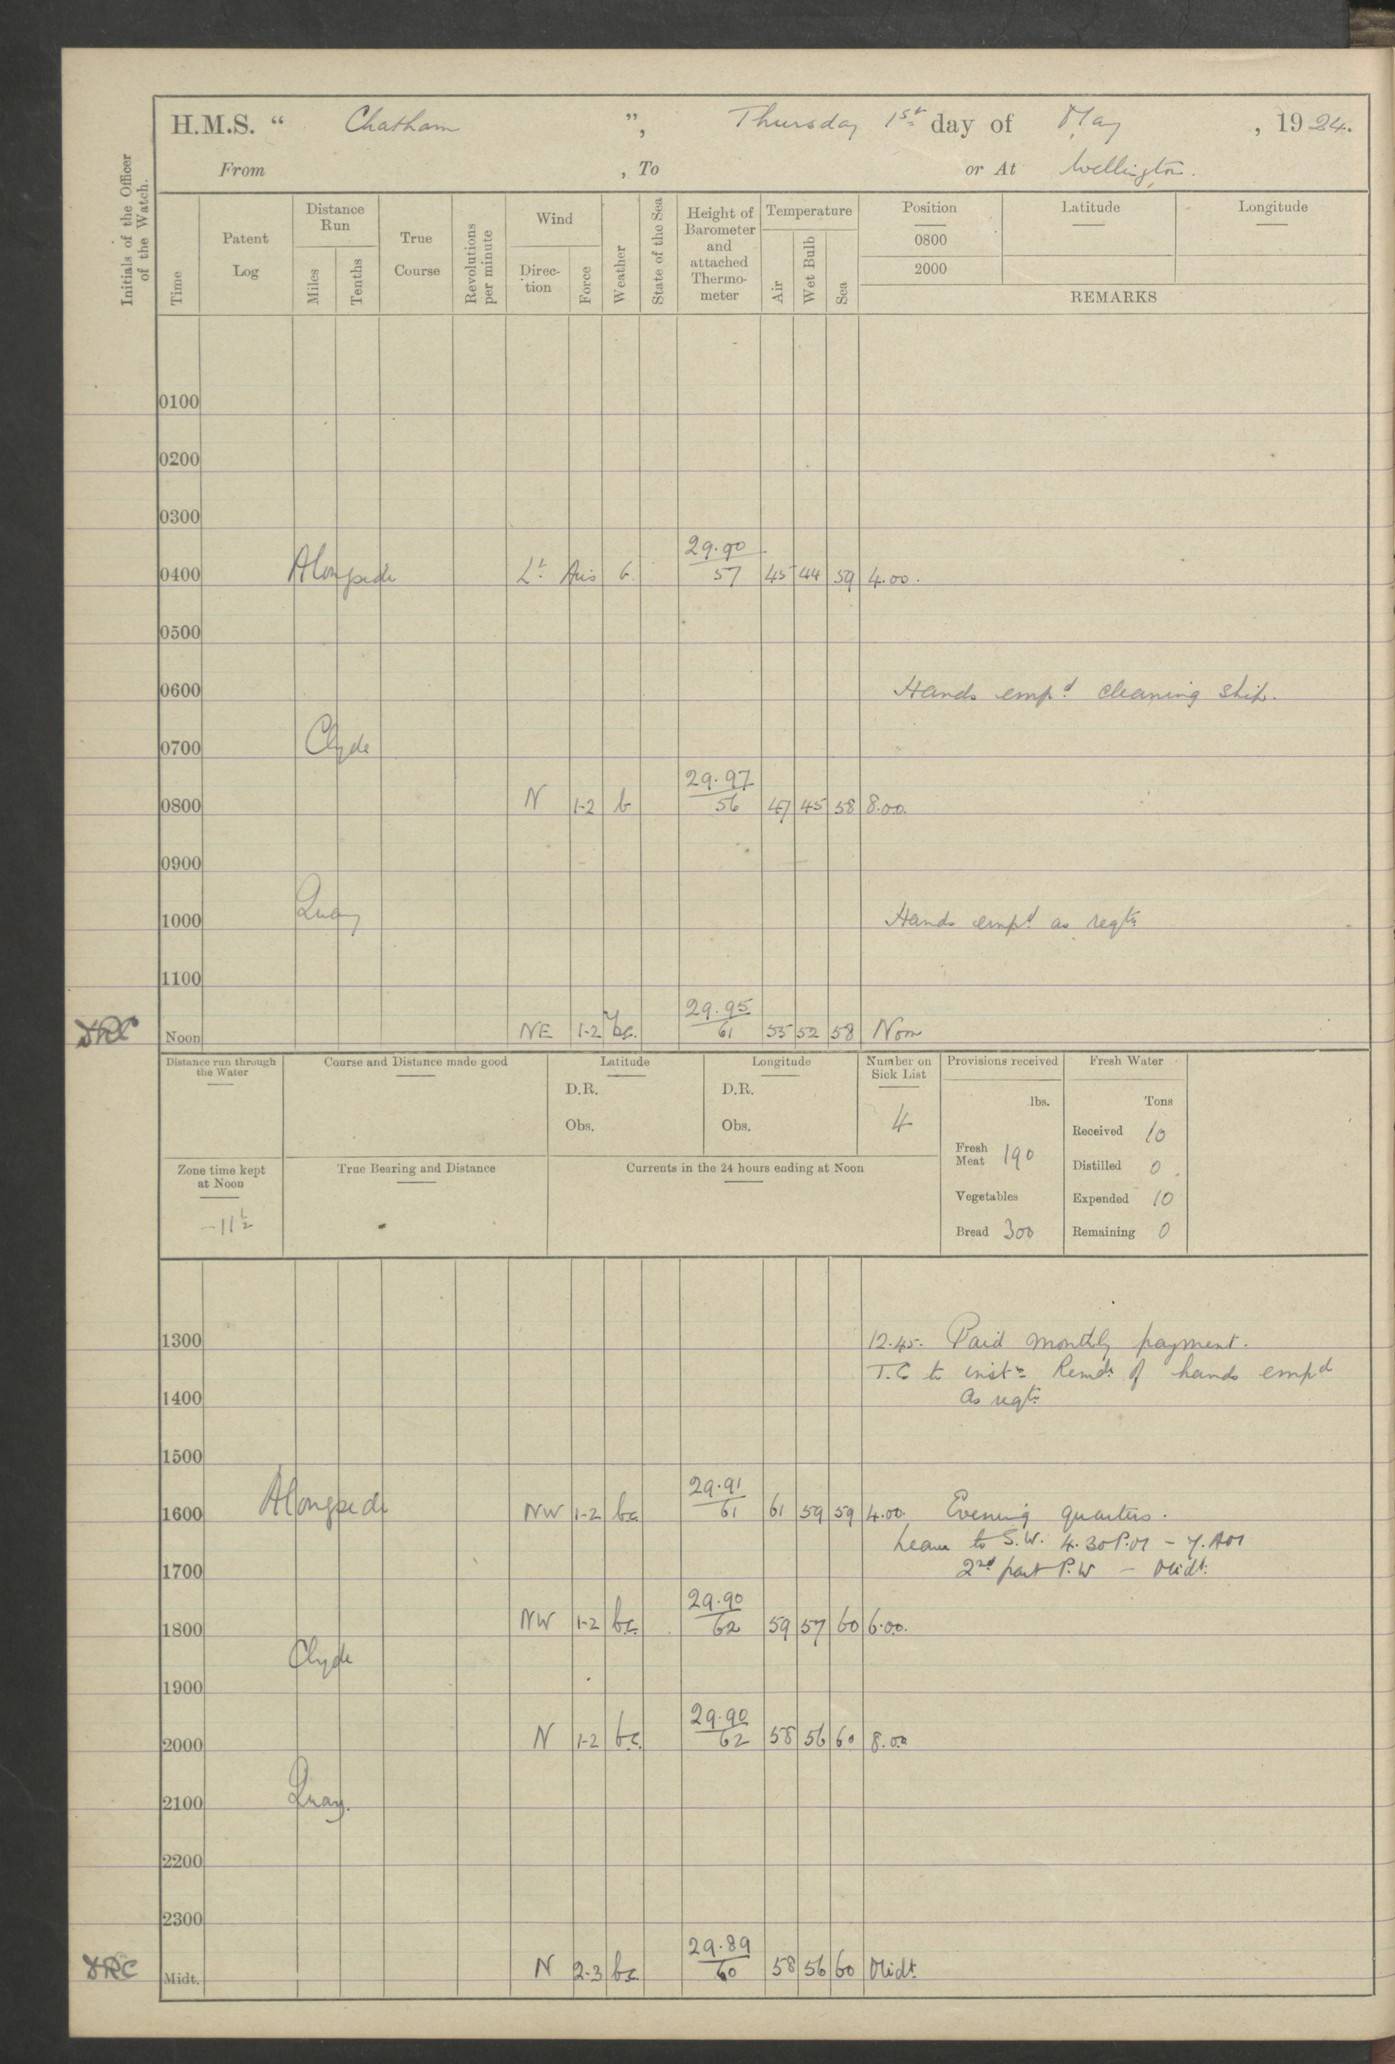 H.M.S. “ Chatham ”, Thursday 1st day of May , 1924.
From , To or At Wellington.
Initials of the Officer of the Watch.
Time
Patent Log
Distance Run
Miles
Tenths
True Course
Revolutions per minute
Wind
Direc-tion
Force
Weather
State of the Sea
Height of Barometer and attached Thermo-meter
Temperature
Air
Wet Bulb
Sea
Position
Latitude
Longitude
0800
2000
REMARKS
0100
0200
0300
0400 Alongside Lt Airs b 29.90 57 45 44 59 4.00.
0500
0600 Hands empd cleaning ship.
0700 Clyde
0800 N 1-2 b 29.97 56 47 45 58 8.00.
0900
1000 Quay Hands empd as reqte
1100
Noon NE 1-2 bc. 29.95 61 55 52 58 Noon
Distance run through the Water
Course and Distance made good
Latitude
D.R.
Obs.
Longitude
D.R.
Obs.
Number on Sick List
4
Provisions received
lbs.
Fresh Meat 190
Vegetables
Bread 300
Fresh Water
Tons
Received 10
Distilled 0
Expended 10
Remaining 0
Zone time kept at Noon
-11½
True Bearing and Distance
Currents in the 24 hours ending at Noon
1300 12.45. Paid monthly payment.
T.C to instn Remdr of hands empd
1400 as reqte
1500
1600 Alongside NW 1-2 bc 29.91 61 61 59 59 4.00. Evening quarters.
Leave to S.W. 4.30 P.M - 7. AM
1700 2nd part P.W - Midt.
1800 NW 1-2 bc. 29.90 62 59 57 60 6.00.
Clyde
1900
2000 N 1-2 bc. 29.90 62 58 56 60 8.00
2100 Quay.
2200
2300
Midt. N 2-3 bc. 29.89 60 58 56 60 Midt.